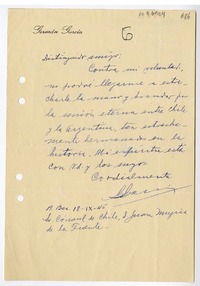 Germán García
Distinguido amigo:
Contra mi voluntad,
no podré llegarme a estre-
charle la mano y brindar por
la unión eterna entre Chile
y la Argentina, tan
hermanados en la
historia. Mi espíritu está
con Ud. y los suyos
Cordialmente
B. Bca 18-IX-45
Sr. Consul de Chile, D. Juan Mujica
de la Fuente.